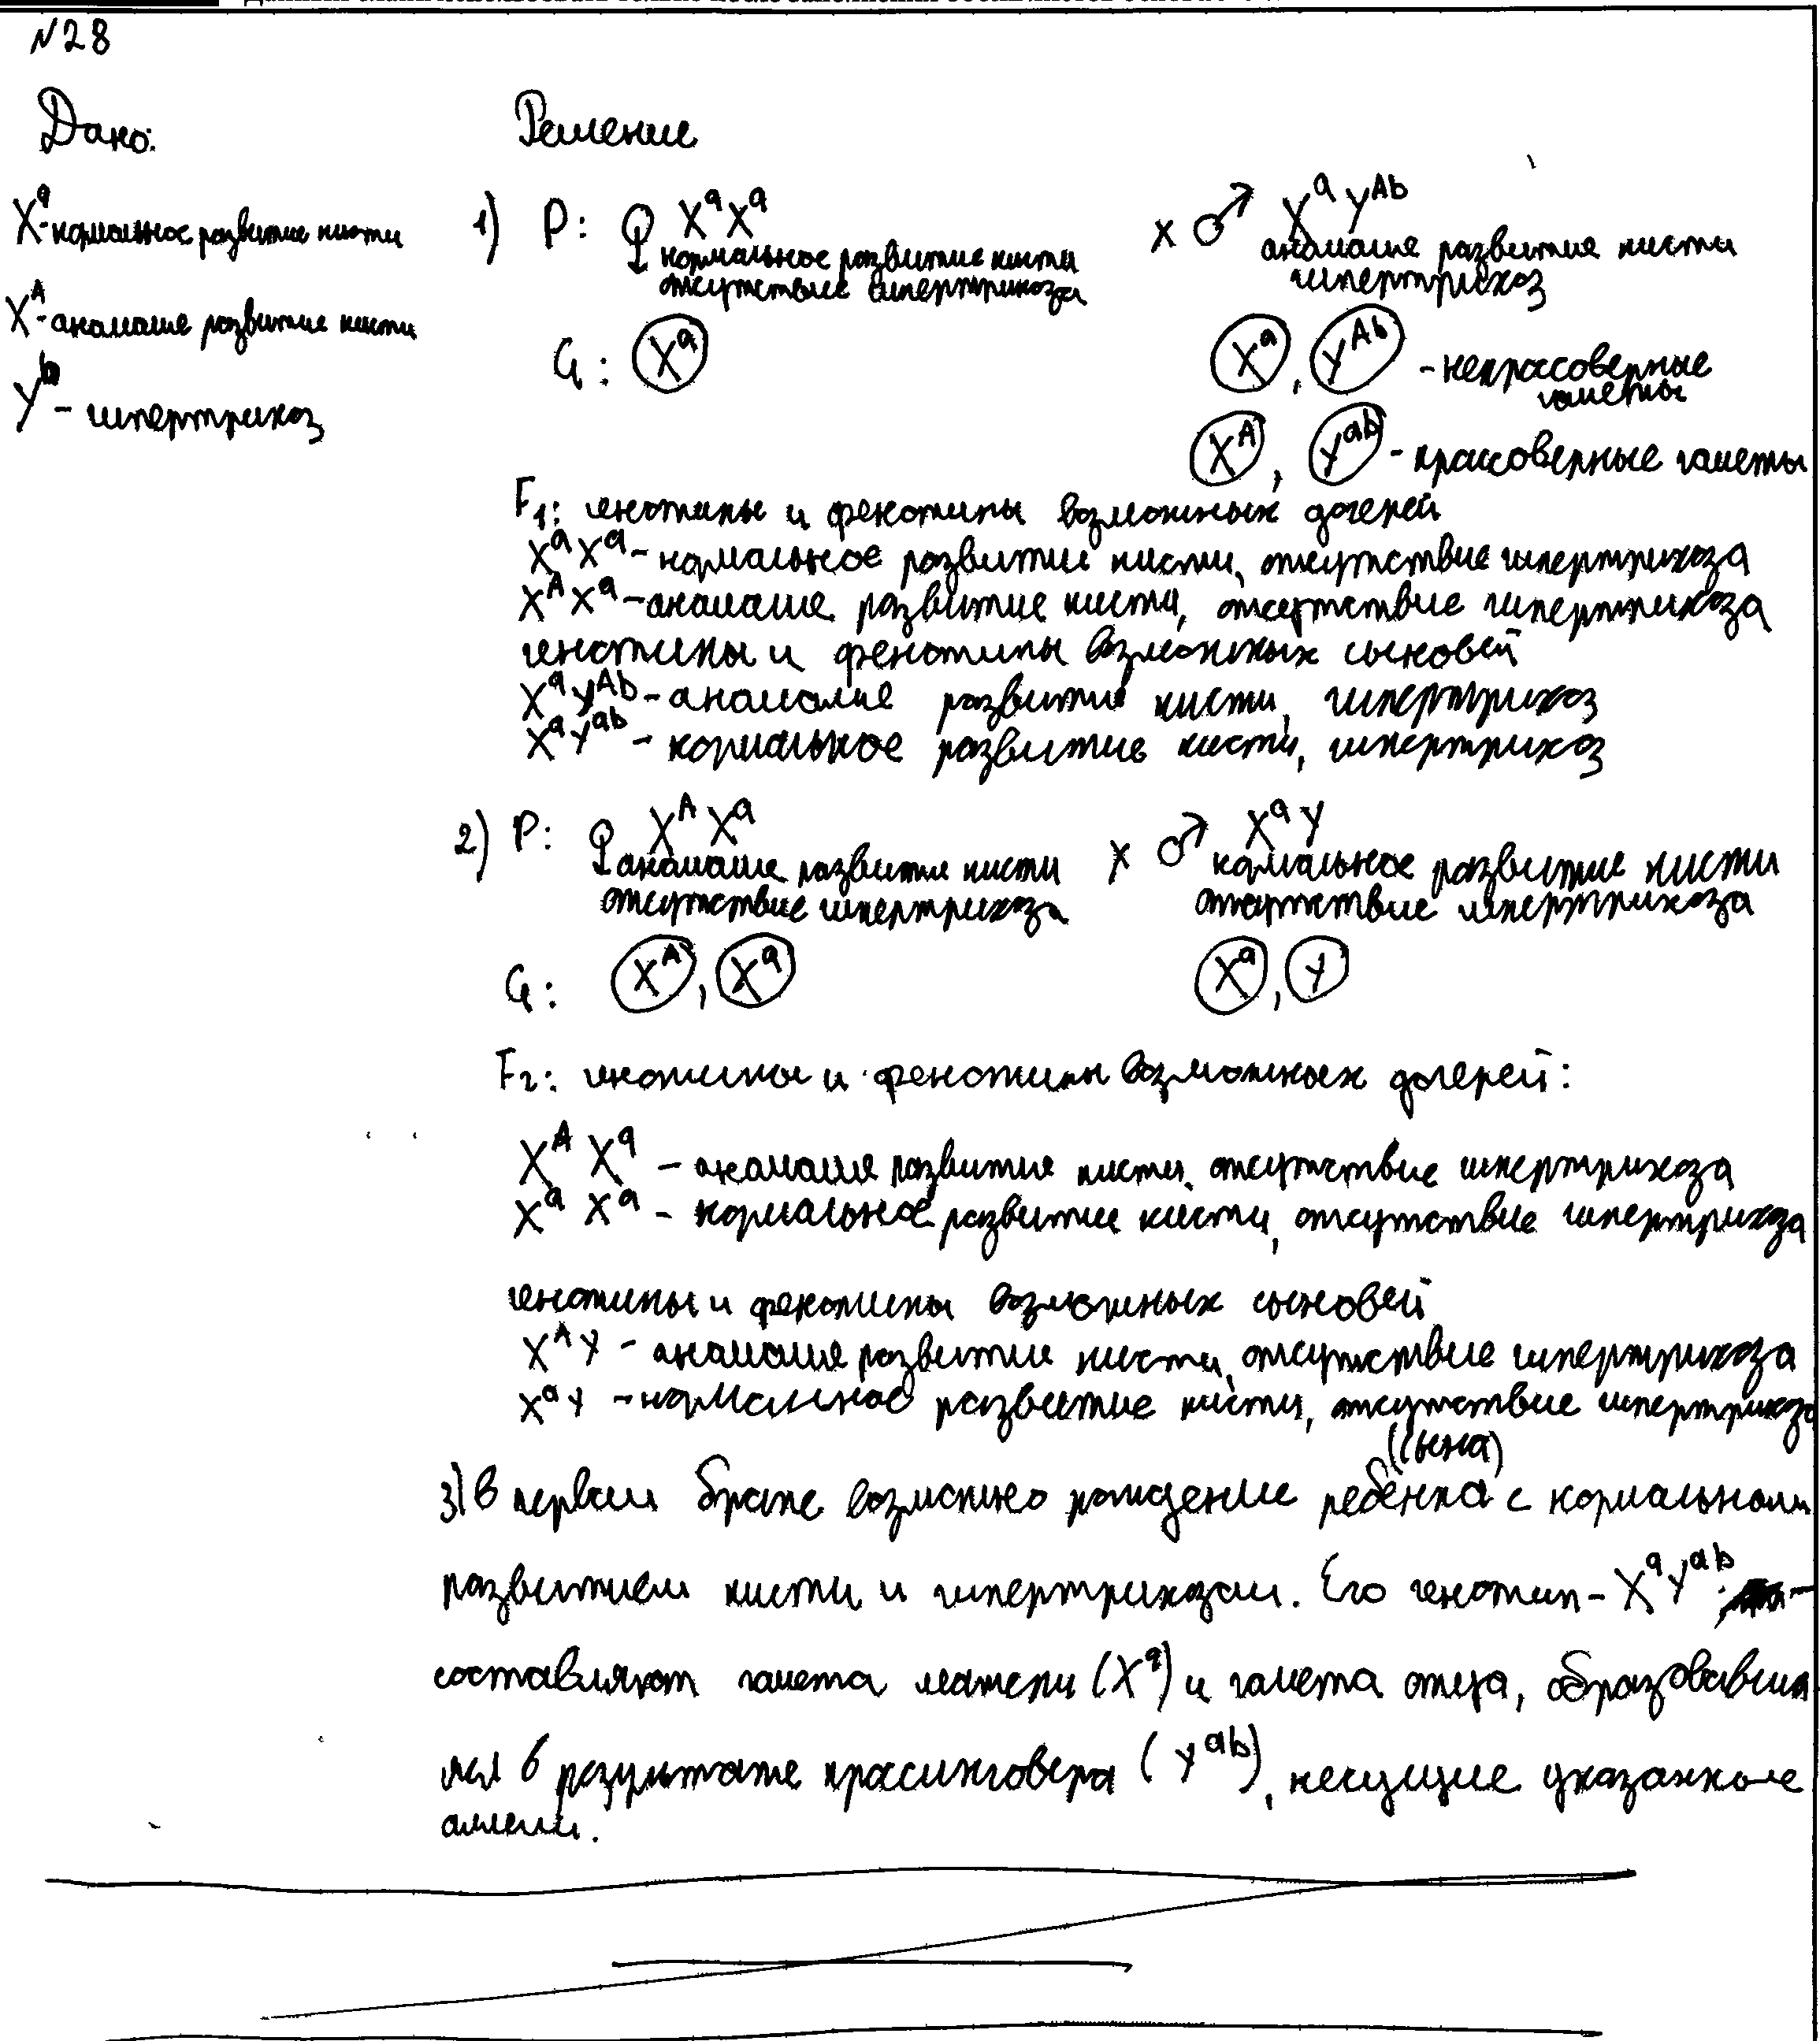 N28
Дано:
Решение
X^a - нормальное развитие кисти
X^A - аномалие развитие кисти
Y^b - гипертрихоз
1) P: ♀ X^a X^a × ♂ X^a Y^Ab
нормальное развитие кисти аномалие развитие кисти
отсутствие гипертрихоза гипертрихоз
G: X^a X^a, Y^Ab - некроссоверные гаметы
X^A, Y^ab - кроссоверные гаметы
F1: генотипы и фенотипы возможных дочерей
X^a X^a - нормальное развитие кисти, отсутствие гипертрихоза
X^A X^a - аномалие развитие кисти, отсутствие гипертрихоза
генотипы и фенотипы возможных сыновей
X^a Y^Ab - аномалие развития кисти, гипертрихоз
X^a Y^ab - нормальное развитие кисти, гипертрихоз
2) P: ♀ X^A X^a × ♂ X^a Y
аномалие развития кисти нормальное развитие кисти
отсутствие гипертрихоза отсутствие гипертрихоза
G: X^A, X^a X^a, Y
F2: генотипы и фенотипы возможных дочерей:
X^A X^a - аномалия развития кисти, отсутствие гипертрихоза
X^a X^a - нормальное развитие кисти, отсутствие гипертрихоза
генотипы и фенотипы возможных сыновей
X^A Y - аномалия развитии кисти, отсутствие гипертрихоза
X^a Y - нормальное развитие кисти, отсутствие гипертрихоза
3) В первом браке возможно рождение ребёнка (сына) с нормальном
развитием кисти и гипертрихозом. Его генотип - X^a Y^ab -
составляют гамета матери (X^a) и гамета отца, образовавша
яся в результате кроссинговера (Y^ab), несущие указанные
аллели.